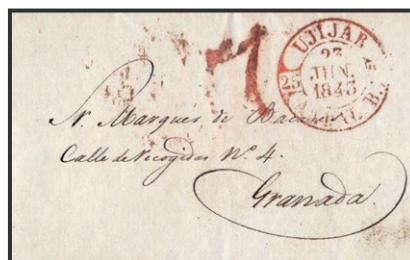 UJIJAR
23
25
JUN.
1845
B.
Sr. Marqués de
Calle de Recogidas Nº 4.
Granada.